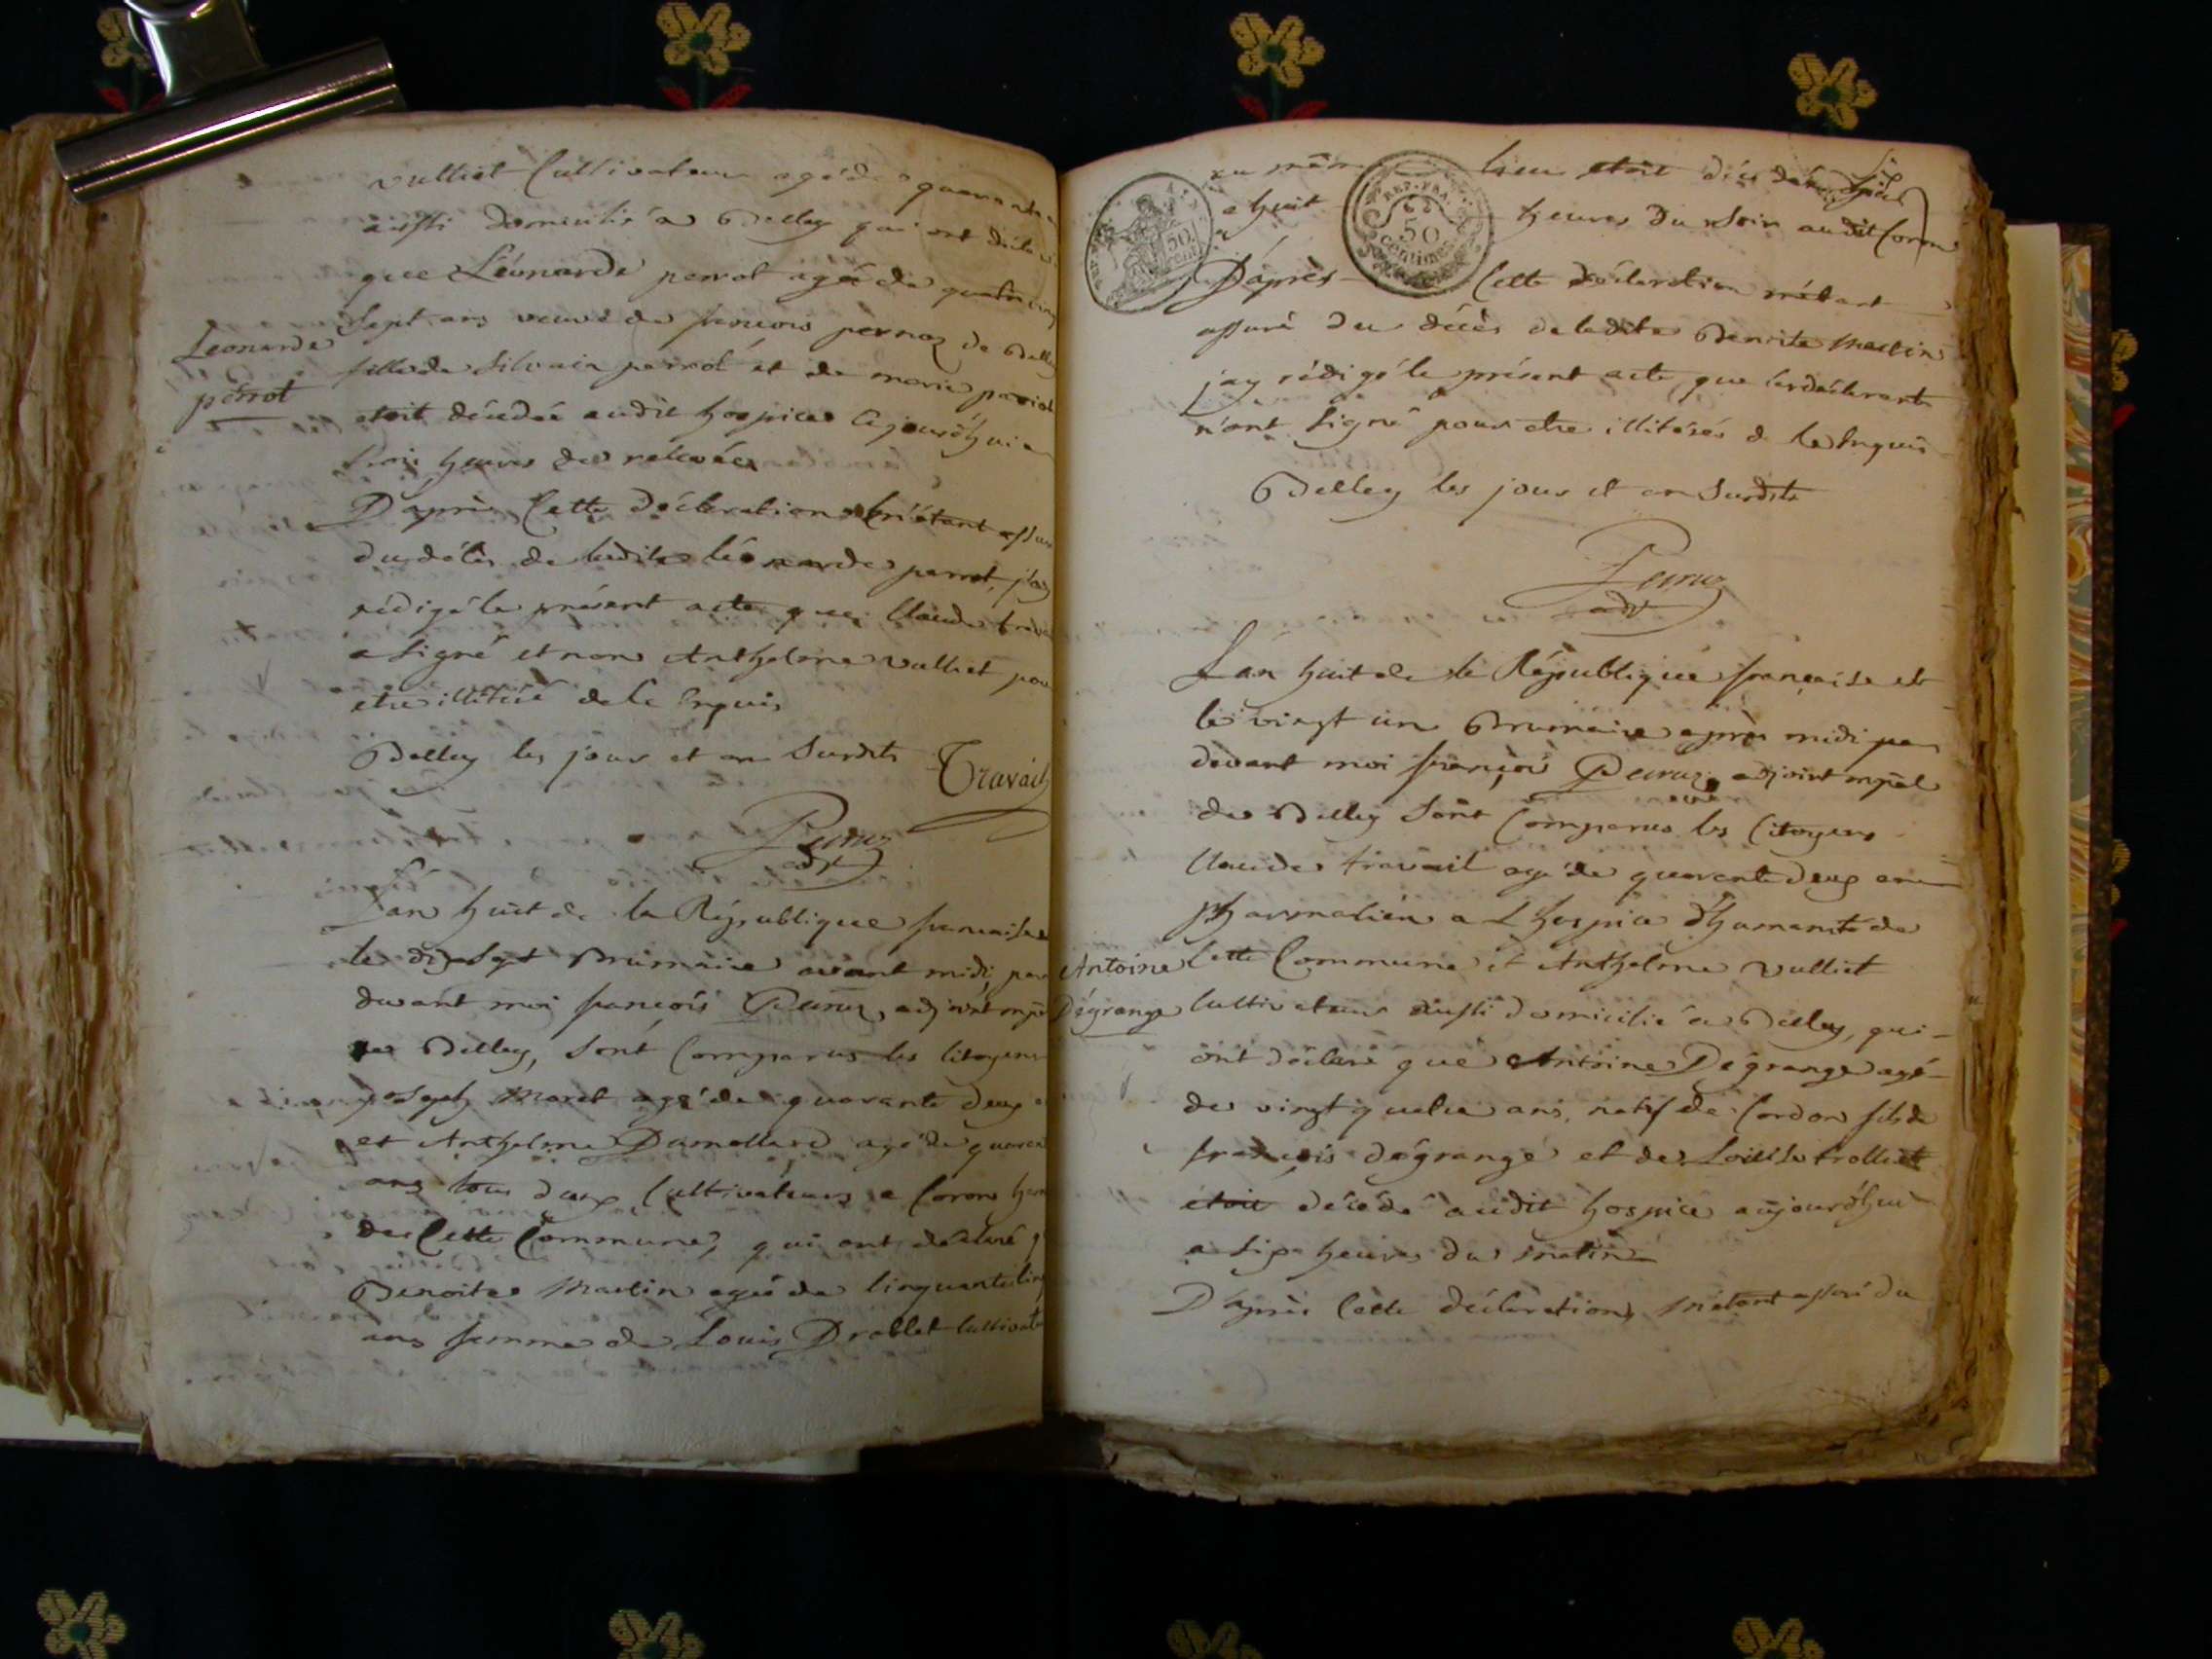 vulliet Cultivateur agé de quarante
aussi domicilié a Belley qui ont déclaré
que Léonarde perrot agée de quatre vingt
Sept ans veuve de françois pernoz de Belley
Leonarde
perrot
fille de Silvain perrot et de marie
etoit décedée audit hospice Cejourdhui a
trois heures de relevée
D'après Cette déclaration m'étant assuré
du décès de ladite léonarde perrot, j'ay
rédigé le présent acte que Claude travail
a Signé et non Anthelme vulliet pour
etre illitéré de ce Enquis
Belley les jour et an Surdits
Travail
Peiruz
adjt
L'an huit de la République francaise
le dix Sept Brumaire avant midi, par
devant moi françois Peiruz, adjoint mpal
de Belley, Sont Comparus les Citoyens
joseph Maret agé de quarante deux
et Anthelme Dumollard agé de quarante
ans tous deux Cultivateurs a Coron ham
de Cette Commune, qui ont déclaré q
Benoite Martin agée de Cinquante Cinq
ans femme de Louis Drablet Cultivate
au même lieu etoit décédée hier
a huit heures du Soir audit Coron
50 cent
REP. FRA.
50
centimes
D'après Cette déclaration m'étant
assuré du décès de ladite Benoite Martin
j'ay rédigé le présent acte que les déclarants
n'ont Signé pour etre illitérés de ce Enquis
Belley les jour et an Surdits
Peiruz
adjt
L'an huit de la République française et
le vingt un Brumaire après midi par
devant moi françois Peiruz adjoint mpal
de Belley Sont Comparus les Citoyens
Claude travail agé de quarante deux ans
pharmatien a L'hospice d'humanité de
Antoine
Dégrange
Cette Commune et Anthelme Vulliet
Cultivateur aussi domicilié a Belley, qui
ont déclaré que Antoine Dégrange agé
de vingt quatre ans, natif de Cordon fils de
françois dégrange et de Louise trolliet
étoit décédé audit hospice aujourdhui
a Six heures du matin
D'après Cette déclaration, m'étant assuré du